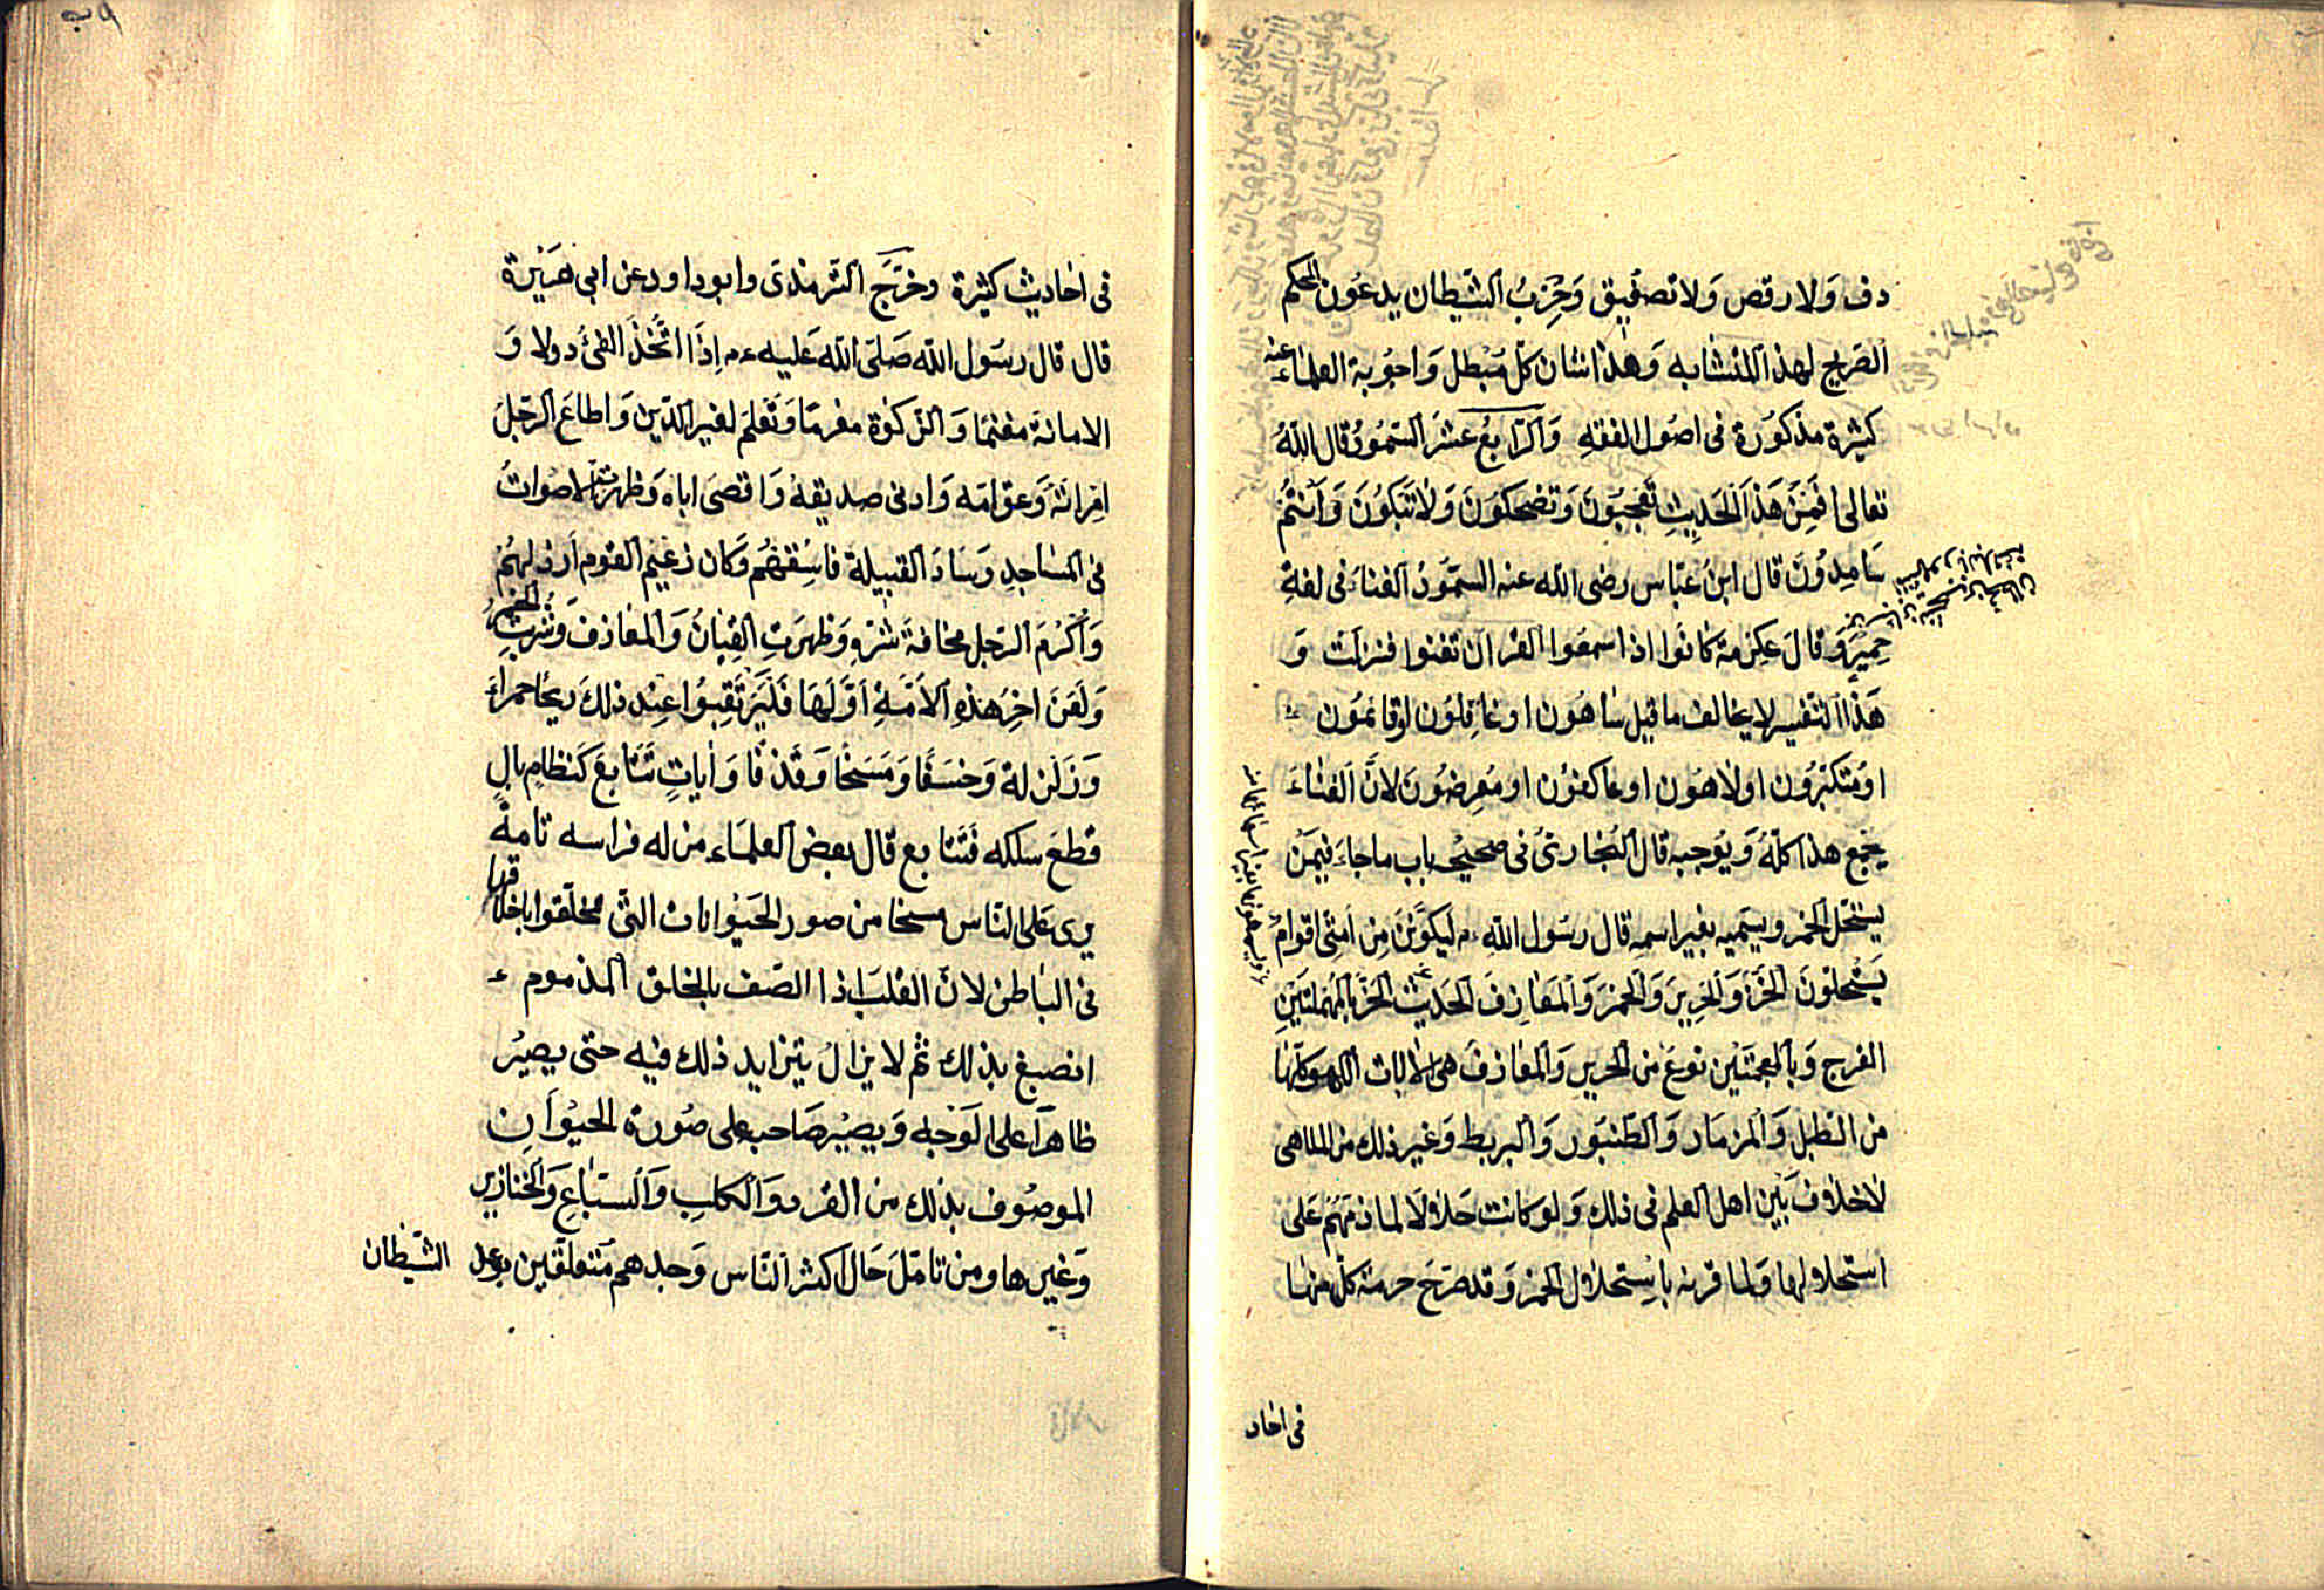 دف وَلا رقص وَلا تصفيق وَحِزبُ الشيطان يدعُون المحكم
الصَريح لهذا المنشابه وَهٰذا شان كلّ مُبْطل وَاجوبة العلماء عنه
كثيرة مذكوُرة فى اصُول الفقهِ وَالرّابعُ عشَر السّمُودُ قال اللهُ
تعالى اَفَمِنْ هَذَا الْحَدِيثِ تَعْجَبُونَ وَتضْحَكُونَ وَلَاتَبْكُونَ وَاَنْتُمْ
سَامِدُونَ قال ابنُ عبّاس رضى الله عنه السمّوُدُ الغناءُ فى لغةِ
حِمْيَر وَقالَ عِكرمة كانُوا اذا سمعُوا القران تغنوا فنزلت وَ
هَذا التفسير لا يخالف ما قيل ساهُون او غافِلوُن او قائمُون
اومُتكبّرُون او لاهُون او عاكفوُن او مُعرِضوُن لانَّ الغناءَ
يجمع هذا كلّهُ وَيوُجبه قال البُخارىّ فى صحيحه باب ماجاءَ فيمَن
يستحّل الخمر ويسَميه بغير اسمه قال رسَول اللهِ ءم ليكوُننّ مِن اُمّتى اقوامٌ
يَسْتَحلّونَ الْحرَ وَالْحَرِيرَ وَالْخمْرَ وَالْمَعَازِفَ الْحَديث الْحرّ بالمُهْملتَيْنِ
الفرج وَبالمعجمتيْن نوعٌ من الحرير وَالمعازفَ هى الاٰلات اللهو كلّها
من الطبل وَالمزمَار وَالطنبَور وَالبربط وَغير ذلك من الملاهى
لاخلاف بَيْن اهل العلم فى ذلك وَلو كانت حَلالًا لما ذمّهُمْ عَلى
استحلالها وَلما قرنه باِستحلال الخمر وَقد صرّحَ حرمة كلّ منها
فى احاد
فى احاديث كثيرة وخرّجَ الترمذى وابو داود عن ابى هُرَيْرة
قال قال رسَول الله صَلىّ الله عَليه ءم اِذَا اتُّخِذَ الفئُ دولا وَ
الامانة مغنمًا وَالزكوٰة مغرمًا وَتُعُلِّمَ لغير الدّين وَاطاعَ الرجُل
امْراتهُ وَعقّ امّه وَادنى صديقهُ وَاقصىَ اباه وَظهرت الاصْواتُ
فى المسَاجدِ وَسَادَ القبيلة فاسِقهُم وَكان زعَيم القوم اَرذلهُمْ
وَاُكْرِمَ الرّجل مخافةَ شرِّهِ وَظهرَتِ القِيَانُ وَالمعَازفَ وَشُرِبَتِ الخمر
وَلَعَنَ اخِرُ هَذهِ الْاُمّةِ اَوّلَهَا فَلْيَرْتَقِبُوا عِنْد ذلكَ ريحًا حمراءَ
وَزَلْزلة وَخسَفًا وَمَسَخًا وَقذْفًا وَاٰياتٍ تَتَابعَ كَنظامٍ بالٍ
قطعَ سلكه فَتتابع قال بعض العلماَء من له فراسه تامة
يرى عَلى الناس مسخا من صور الحَيْوانات التى تخلّقوا باخلاقها
فى الباطن لانّ القلبَ اذا اتّصف بالخلق المذموم
انصبغ بذلك ثم لا يزالُ يتزايد ذلك فيه حتى يصيرُ
ظاهرًا على الوَجه وَيصيْر صَاحبه على صُورة الحيْوَانِ
الموصُوف بذلك من القرد وَالكلب وَالسبَاعِ وَالخنازير
وَغيرها ومن تامّلَ حَال اكثر النّاس وَجدهم مُتعلقين
الشيّطان